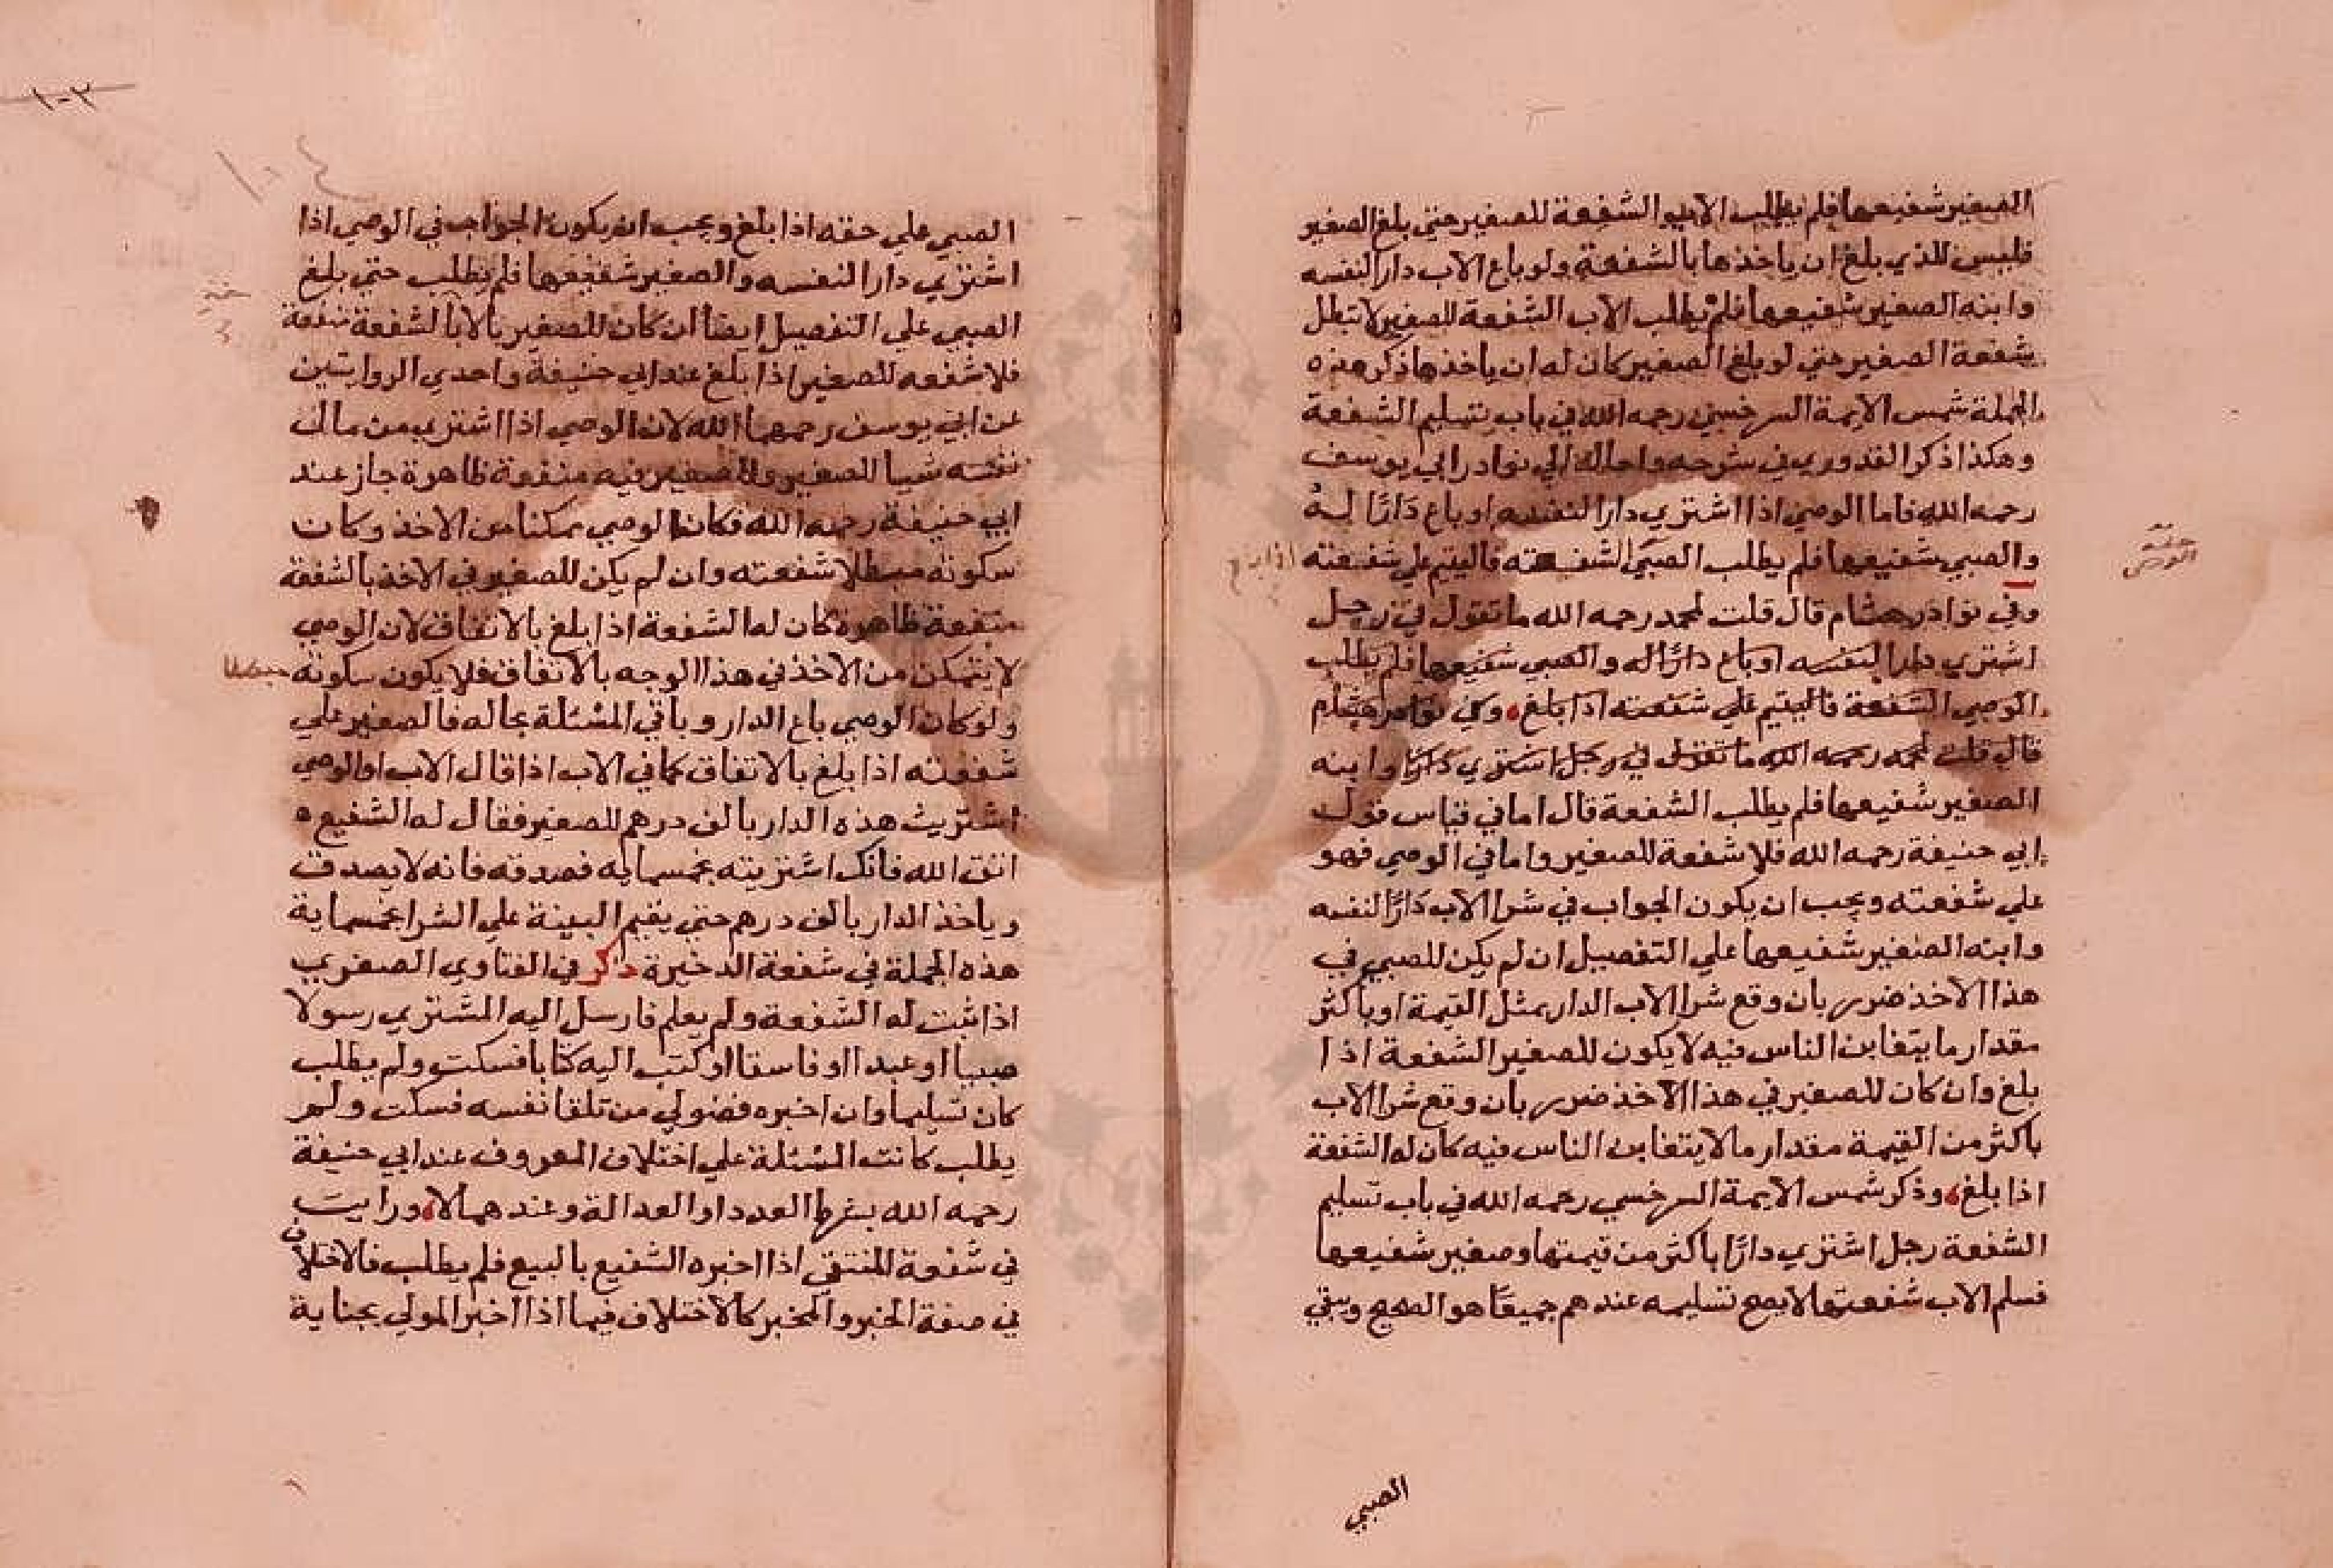 الصغير شفيعها فلم يطلب الاب الشفعة للصغير حتي بلغ الصغير
فليس للذي بلغ ان ياخذها بالشفعة ولو باع الاب دارا لنفسه
وابنه الصغير شفيعها فلم يطلب الاب الشفعة للصغير لا تبطل
شفعة الصغير حتي لو بلغ الصغير كان له ان ياخذها ذكر هذه
الجملة شمس الايمة السرخسي رحمه الله في باب تسليم الشفعة
وهكذا ذكر القدوري في شرحه واحاله الي نوادر ابي يوسف
رحمه الله فاما الوصي اذا اشتري دارا لنفسه او باع دارًا له
والصبي شفيعها فلم يطلب الصبي الشفعته فاليتم علي شفعته
اذا بلغ
وفي نوادر هشام قال قلت لمحمد رحمه الله ما تقول في رجل
اشتري دارا لنفسه او باع دارًا له والصبي شفيعها فلم يطلب
الوصي الشفعة فاليتيم علي شفعته اذا بلغ وفي نوادر هشام
قال قلت لمحمد رحمه الله ما تقول في رجل اشتري دارًا وابنه
الصغير شفيعها فلم يطلب الشفعة قال اما في قياس قول
ابي حنيفة رحمه الله فلا شفعة للصغير واما في الوصي فهو
علي شفعته ويجب ان يكون الجواب في شرا الاب دارًا لنفسه
وابنه الصغير شفيعها علي التفصيل ان لم يكن للصبي في
هذا الاخذ ضرر بان وقع شرا الاب الدار بمثل القيمة او باكثر
مقدار ما يتغابن الناس فيه لا يكون للصغير الشفعة اذا
بلغ وان كان للصغير في هذا الاخذ ضرر بان وقع شرا الاب
باكثر من القيمة مقدار ما لا يتغابن الناس فيه كان له الشفعة
اذا بلغ وذكر شمس الايمة السرخسي رحمه الله في باب تسليم
الشفعة رجل اشتري دارًا باكثر من قيمتها وصغير شفيعها
فسلم الاب شفعتها لا يصح تسليمه عندهم جميعًا هو الصحيح وبقي
الصبي
١٠٣
الصبي علي حقه اذا بلغ ويجب ان يكون الجواب في الوصي اذا
اشتري دارا لنفسه والصغير شفيعها فلم يطلب حتي بلغ
الصبي علي التفصيل ايضا ان كان للصغير بالا بالشفعة منفعة
فلا شفعه للصغير اذا بلغ عند ابي حنيفة واحدي الروايتين
عن ابي يوسف رحمهما الله لان الوصي اذا اشتري من مال
نفسه شيا للصغير وللصغير فيه منفعة ظاهرة جاز عند
ابي حنيفة رحمه الله فكان الوصي ممكنا من الاخذ وكان
سكوته مبطلا شفعته وان لم يكن للصغير في الاخذ بالشفعة
منفعة ظاهرة كان له الشفعة اذا بلغ بالاتفاق لان الوصي
لا يتمكن من الاخذ في هذا الوجه بالاتفاق فلا يكون سكوته
مبطلا
ولو كان الوصي باع الدار وباقي المسئلة بحاله فالصغير علي
شفعته اذا بلغ بالاتفاق كما في الاب اذا قال الاب او الوصي
اشتريت هذه الدار بالف درهم للصغير فقال له الشفيع ه
اتق الله فانك اشتريته بخمسماية فصدقه فانه لا يصدق
وياخذ الدار بالف درهم حتي يقيم البينة علي الشرا بخمسماية
هذه الجملة في شفعة الدخيرة ذكر في الفتاوي الصغري
اذا ثبت له الشفعة ولم يعلم فارسل اليه المشتري رسولا
صبيا او عبدا او فاسقا او كتب اليه كتابا فسكت ولم يطلب
كان تسليما وان اخبره فضولي من تلقا نفسه فسكت ولم
يطلب كانت المسئلة علي اختلاف المعروف عند ابي حنيفة
رحمه الله بشرط العدد او العدالة وعندهما لا ورايت
في شفعة المنتقي اذا اخبره الشفيع بالبيع فلم يطلب فالاختلاف
في صفة الخبر والمخبر كالاختلاف فيما اذا اخبر المولي بجناية